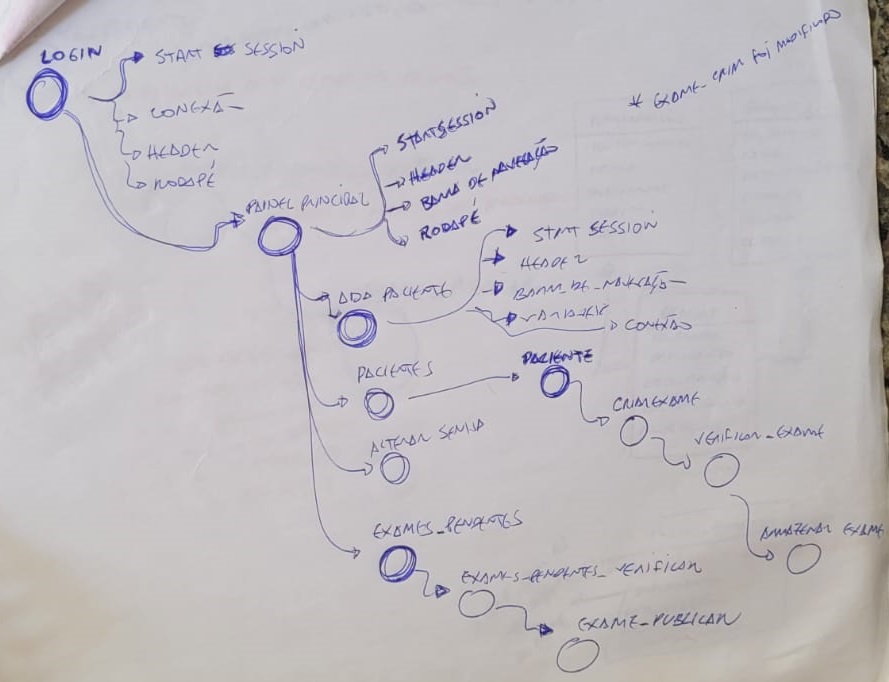 LOGIN
START SESSION
CONEXÃO
HEADER
RODAPÉ
* EXAME_CRIAR FOI MODIFICADO
PAINEL PRINCIPAL
START SESSION
HEADER
BARRA DE NAVEGAÇÃO
RODAPÉ
ADD PACIENTE
START SESSION
HEADER
BARRA_DE_NAVEGAÇÃO
CONEXÃO
PACIENTES
PACIENTE
CRIAR EXAME
VERIFICAR_EXAME
ARMAZENAR EXAME
ALTERAR SENHA
EXAMES_PENDENTES
EXAMES_PENDENTES_VERIFICAR
EXAME_PUBLICAR